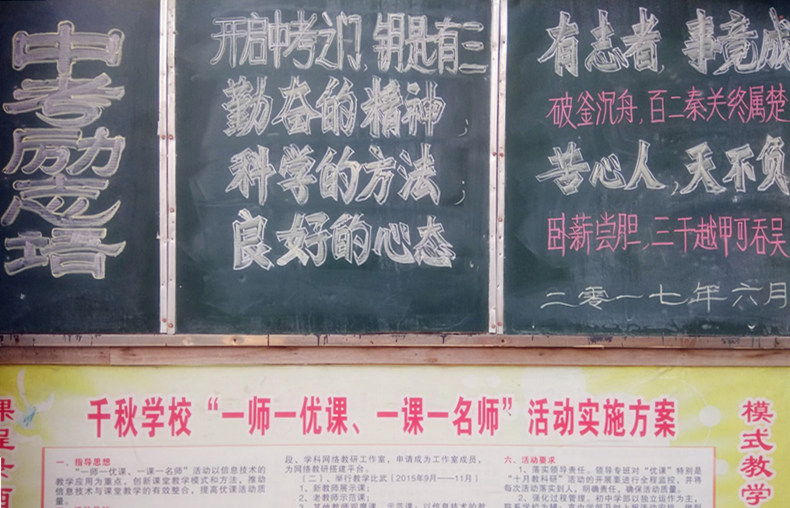 中考励志
开启中考之门，钥匙有三
勤奋的精神，
科学的方法，
良好的心态
有志者，事竟成
破釜沉舟，百二秦关终属楚
苦心人，天不负
卧薪尝胆，三千越甲可吞吴
二零一七年六月
千秋学校“一师一优课、一课一名师”活动实施方案
课程
模式教学
一、指导思想
“一师一优课、一课一名师”活动以信息技术的
教学应用为重点，创新课堂教学模式和方法，推动
信息技术与课堂教学的有效整合，提高优课活动质
量。
段、学科网络教研工作室，申请成为工作室成员，
为网络教研搭建平台。
（二）、举行教学比武（2015年9月——11月）
1、新教师展示课；
2、老教师示范课；
六、活动要求
1、落实领导责任。领导专班对“优课”特别是
“十月教科研”活动的开展要进行全程监控，并将
每次活动落实到人，明确责任，确保活动质量。
2、强化过程管理。初中学部以独立运作为主，